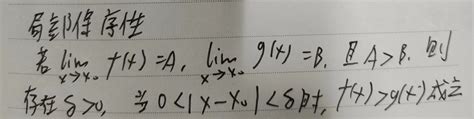 局部保序性
若 lim x→x₀ f(x)=A, lim x→x₀ g(x)=B, 且A>B. 则
存在δ>0, 当0<|x-x₀|<δ时, f(x)>g(x)成立